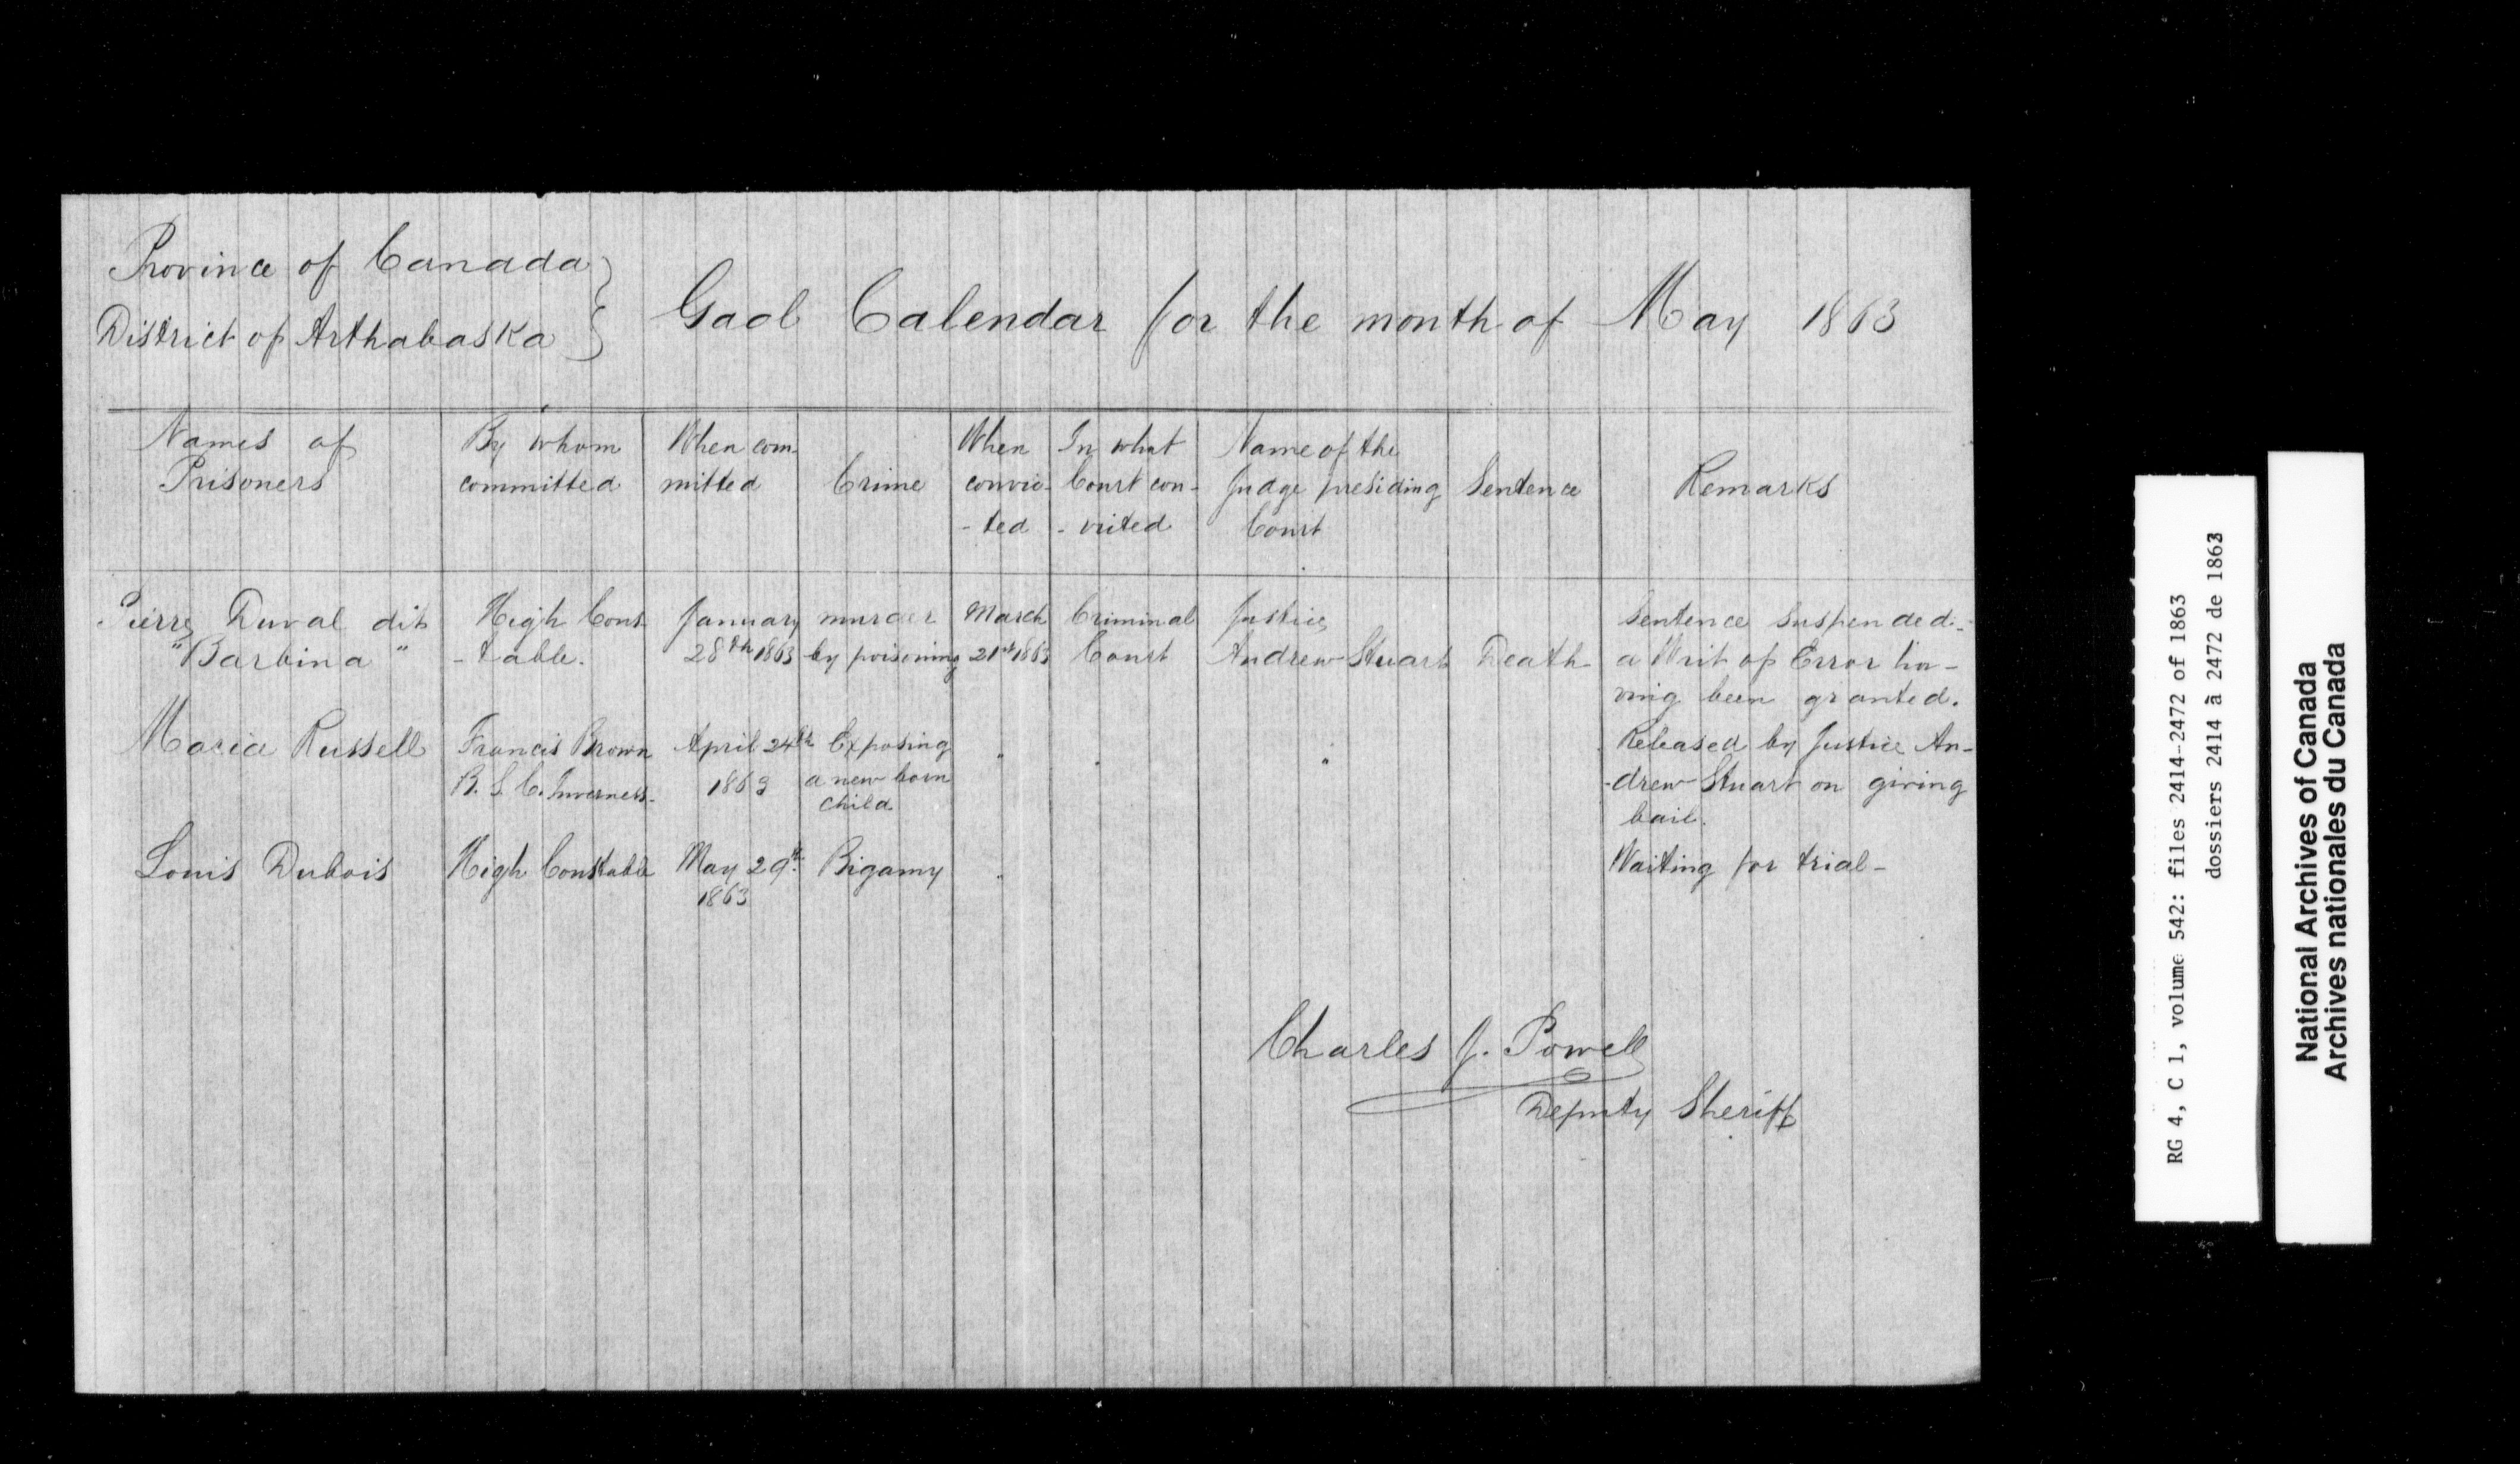 Province of Canada
District of Arthabaska
Gaol Calendar for the month of May 1863
Names of Prisoners
By whom committed
When com-
mitted
Crime
When
convic-
-ted
In what
Court con-
-victed
Name of the
Judge presiding
Court
Sentence
Remarks
Pierre Duval dit
"Barbina"
High Cons
-table.
January
28th 1863
murder
by poisoning
March
21st 1863
Criminal
Court
Justice
Andrew Stuart
Death
Sentence suspended.-
a Writ of Error ha-
ving been granted.
Maria Russell
Francis Brown
B. S. C. Inverness-
April 24th
1863
Exposing
a new born
child
"
"
"
Released by Justice An-
-drew Stuart on giving
bail.
Louis Dubois
High Constable
May 29th
1863
Bigamy
"
Waiting for trial-
Charles J. Powell
Deputy Sheriff
RG 4, C 1, volume 542: files 2414-2472 of 1863
dossiers 2414 à 2472 de 1863
National Archives of Canada
Archives nationales du Canada